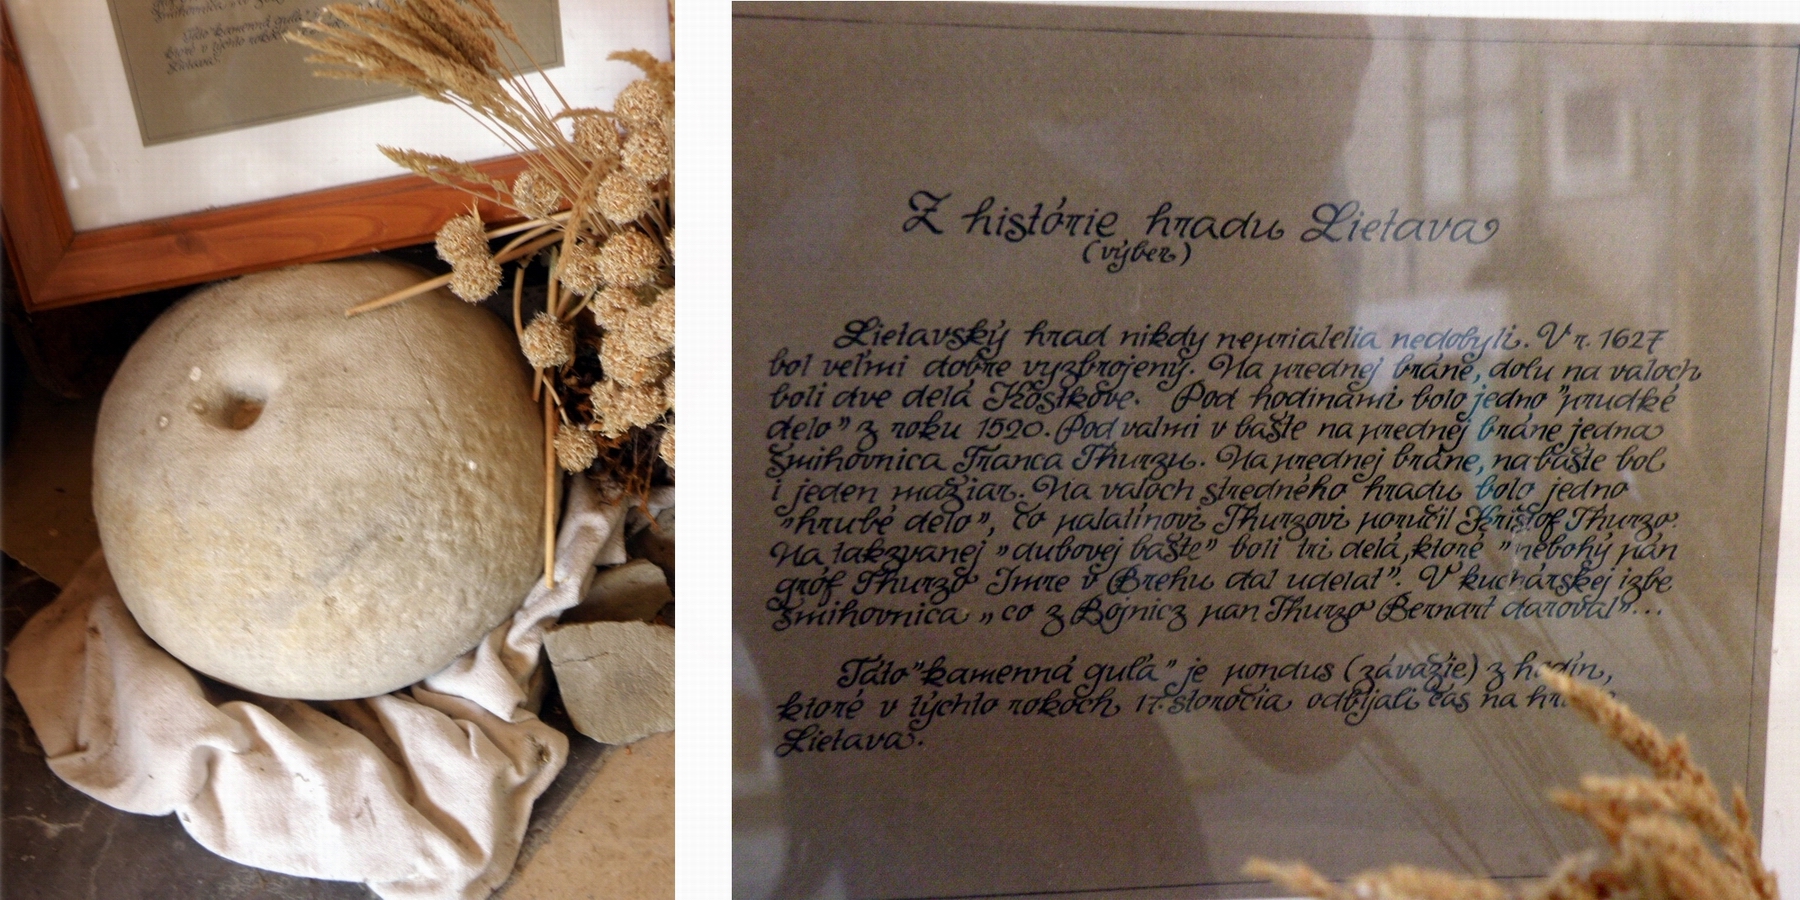 Šmihovnica „co z
Táto "kamenná guľa"
ktoré v týchto rokoch
Lietava.
Z histórie hradu Lietava
(výber)
Lietavský hrad nikdy nepriatelia nedobyli. V r. 1627
bol veľmi dobre vyzbrojený. Na prednej bráne, dolu na valoch
boli dve delá Kostkove. Pod hodinami bolo jedno "prudké
delo" z roku 1520. Pod valmi v bašte na prednej bráne jedna
šmihovnica Franca Thurzu. Na prednej bráne, na bašte bol
i jeden mažiar. Na valoch stredného hradu bolo jedno
"hrubé delo", čo palatínovi Thurzovi poručil Krištof Thurzo.
Na takzvanej "dubovej bašte" boli tri delá, ktoré "nebohý pán
gróf Thurzo Imre v Brehu dal udelať". V kuchárskej izbe
šmihovnica „co z Bojnicz pan Thurzo Bernart daroval"...
Táto "kamenná guľa" je pondus (závažie) z hodín,
ktoré v týchto rokoch 17. storočia odbíjali čas na
Lietava.